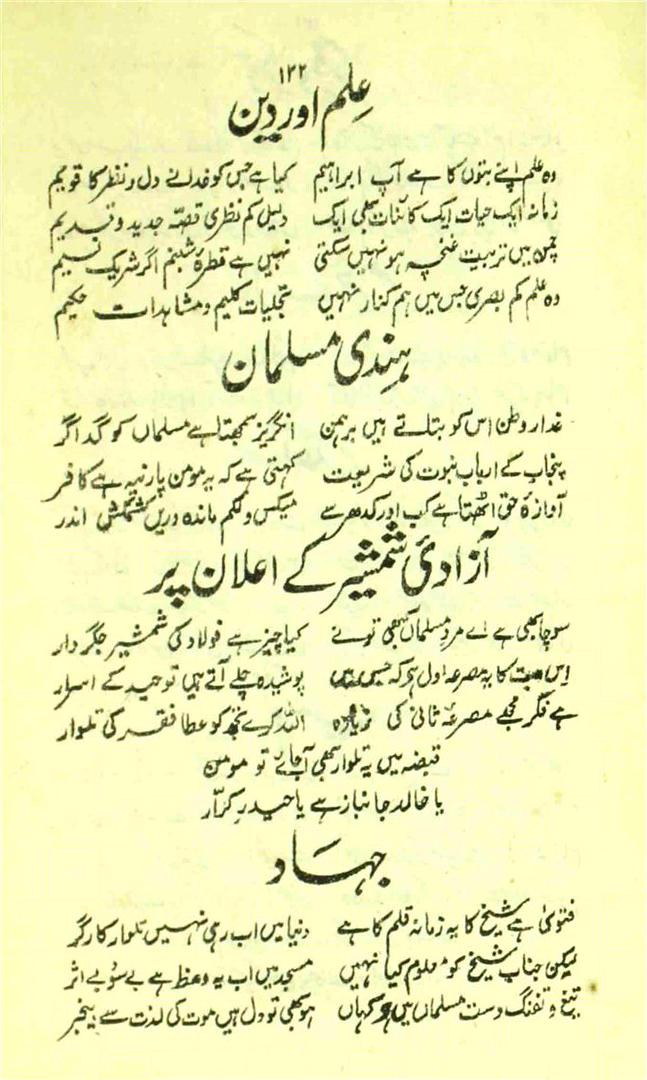 ۱۲۲
علم اور دین
وہ علم اپنے بتوں کا ہے آپ ابراہیم کیا ہے جس کو خدا نے دل و نظر کا قویم
زمانہ ایک حیات ایک کائنات بھی ایک دلیل کم نظری قصّہ جدید و قدیم
چمن میں تربیت غنچہ ہو نہیں سکتی نہیں ہے قطرۂ شبنم اگر شریک نسیم
وہ علم کم بصری جس میں ہم کنار نہیں تجلیات کلیم و مشاہدات حکیم
ہندی مسلمان
غدار وطن اس کو بتاتے ہیں برہمن انگریز سمجھتا ہے مسلماں کو گداگر
پنجاب کے ارباب نبوت کی شریعت کہتی ہے کہ یہ مومن پارنیہ ہے کافر
آوازۂ حق اٹھتا ہے کب اور کدھر سے میکس و لکم ماندہ دریں کشمکش اندر
آزادیٔ شمشیر کے اعلان پر
سوچا بھی ہے اے مرد مسلماں کبھی تو نے کیا چیز ہے فولاد کی شمشیر جگر دار
اس بیت کا یہ مصرعہ اول ہے کہ جس میں پوشیدہ چلے آتے ہیں توحید کے اسرار
ہے فکر مجھے مصرعہ ثانی کی زیادہ اللہ کرے تجھ کو عطا فقر کی تلوار
قبضہ میں یہ تلوار بھی آجائے تو مومن
یا خالد جانباز ہے یا حیدر کرّار
جہاد
فتویٰ ہے شیخ کا یہ زمانہ قلم کا ہے دنیا میں اب رہی نہیں تلوار کارگر
لیکن جناب شیخ کو معلوم کیا نہیں مسجد میں اب یہ وعظ ہے بے سود بے اثر
تیغ و تفنگ دست مسلماں میں ہے کہاں ہو بھی تو دل ہیں موت کی لذت سے بیخبر